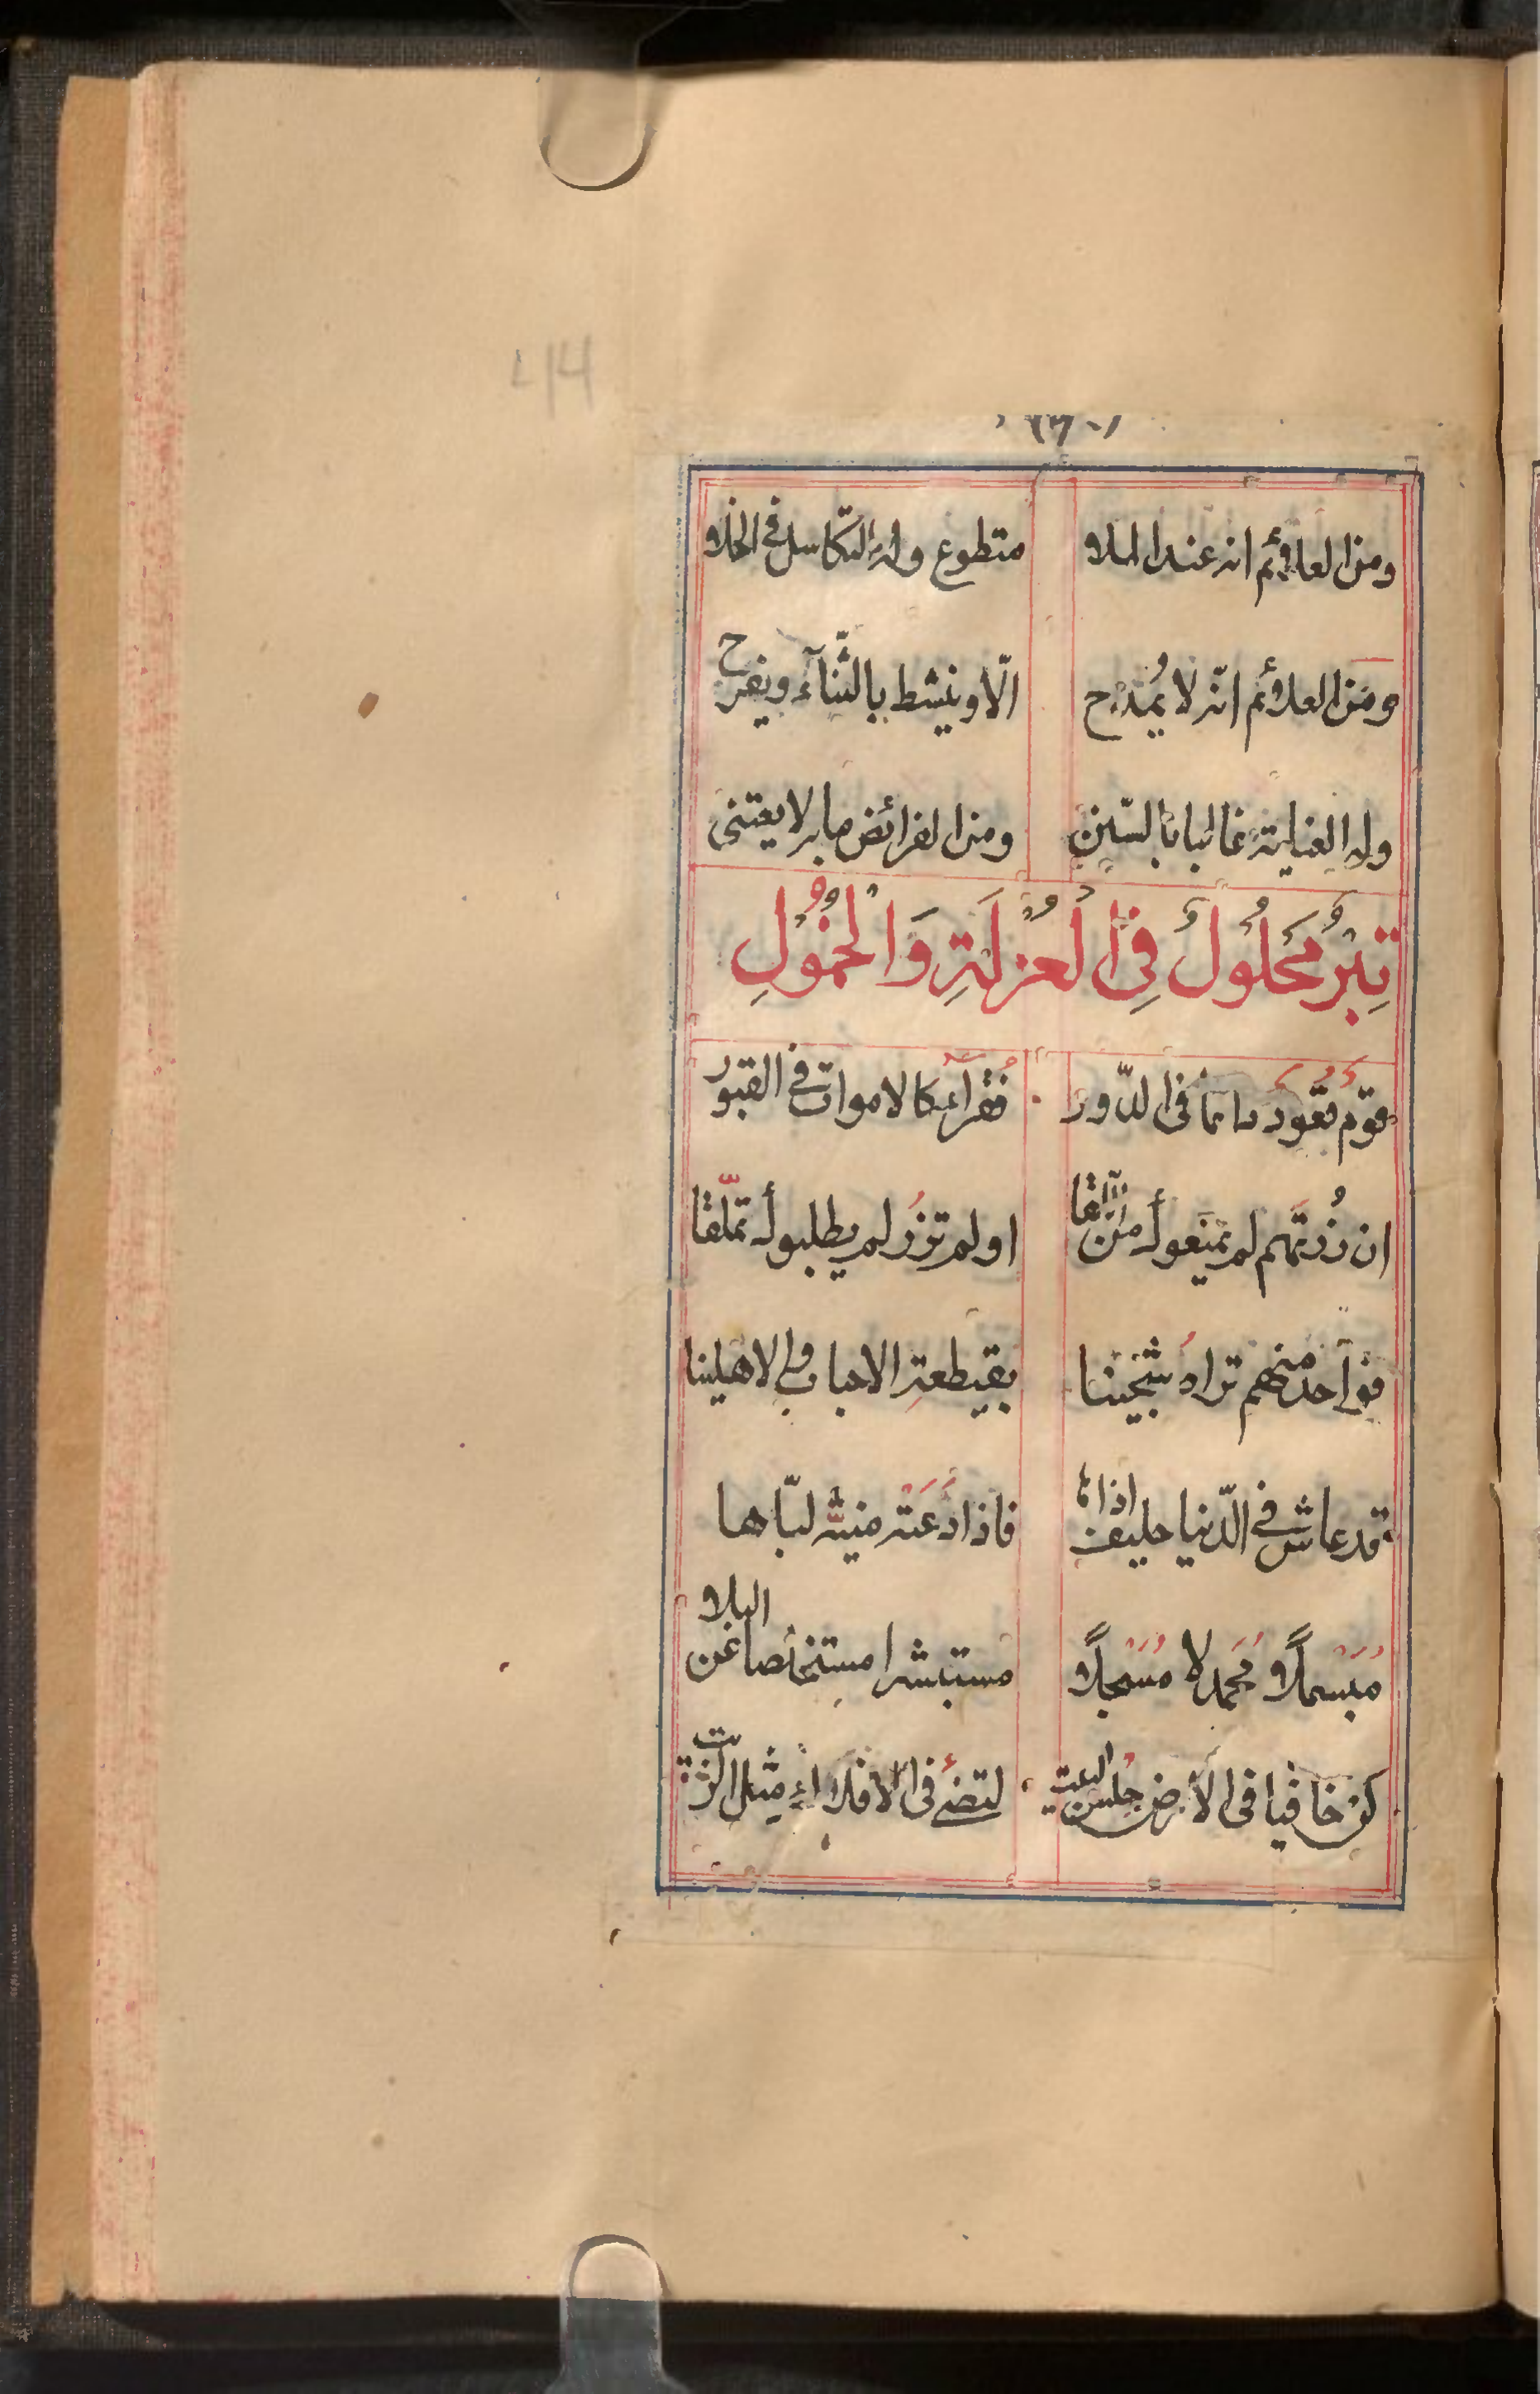 ومن العلائم انه عند الملا متطوع وله التّكاسل فى الخلا
ومن العلائم انّه لا يُمْدَح الّا وينشط بالثّنآء ويفرح
وله العناية غالبا بالسّنن ومن الفرائض ما به لا يعتنى
تِبْرٌ مَحْلُولٌ فِى الْعُزْلَةِ وَالْخُمُولِ
قومٌ قعُود دائما فى الدّور فُقرآء كالاموات فى القبور
ان زُرتَهم لم يمنَعوك من اللّقا او لم تزُر لم يطلبوك تملّقا
فواحد منهم تراهُ سَجينا بقيطعة الاحباب والاهلينا
قد عاش فى الدّنيا حليف اذاها فاذا دَعَتْه منيّة لبّاها
مُبَسْمِلًا مُحَمدِلا مُسَبِحلًا مستبشرا مستخلصا عن البلا
كن خافيا فى الأرض حِلس البيت لتضئ فى الافلاك مثل الزّيت